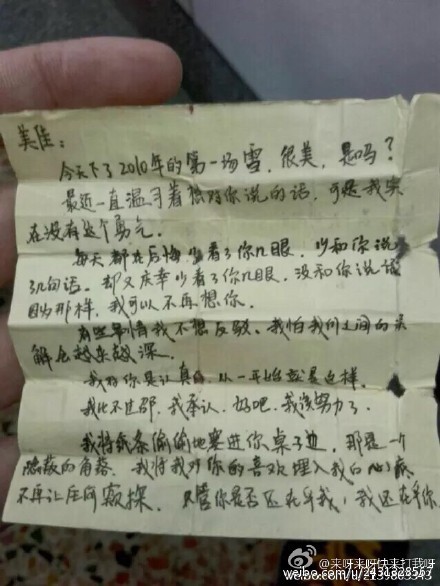 美佳：
今天下了2010年的第一场雪，很美，是吗？
最近一直温习着想对你说的话，可是我实
在没有这个勇气。
每天都在后悔少看了你几眼，少和你说
了几句话。却又庆幸少看了你几眼，没和你说话
因为那样，我可以不再想你。
有些事情我不想反驳，我怕我们之间的误
解会越来越深。
我对你是认真的，从一开始就是这样。
我比不过邵，我承认，好吧，我该努力了。
我将纸条偷偷地塞进你桌子边，那是一个
隐蔽的角落。我将我对你的喜欢埋入我的心底
不再让任何窥探。不管你是否还在乎我，我还在乎你
@来呀来呀快来打我呀
weibo.com/u/2431823557